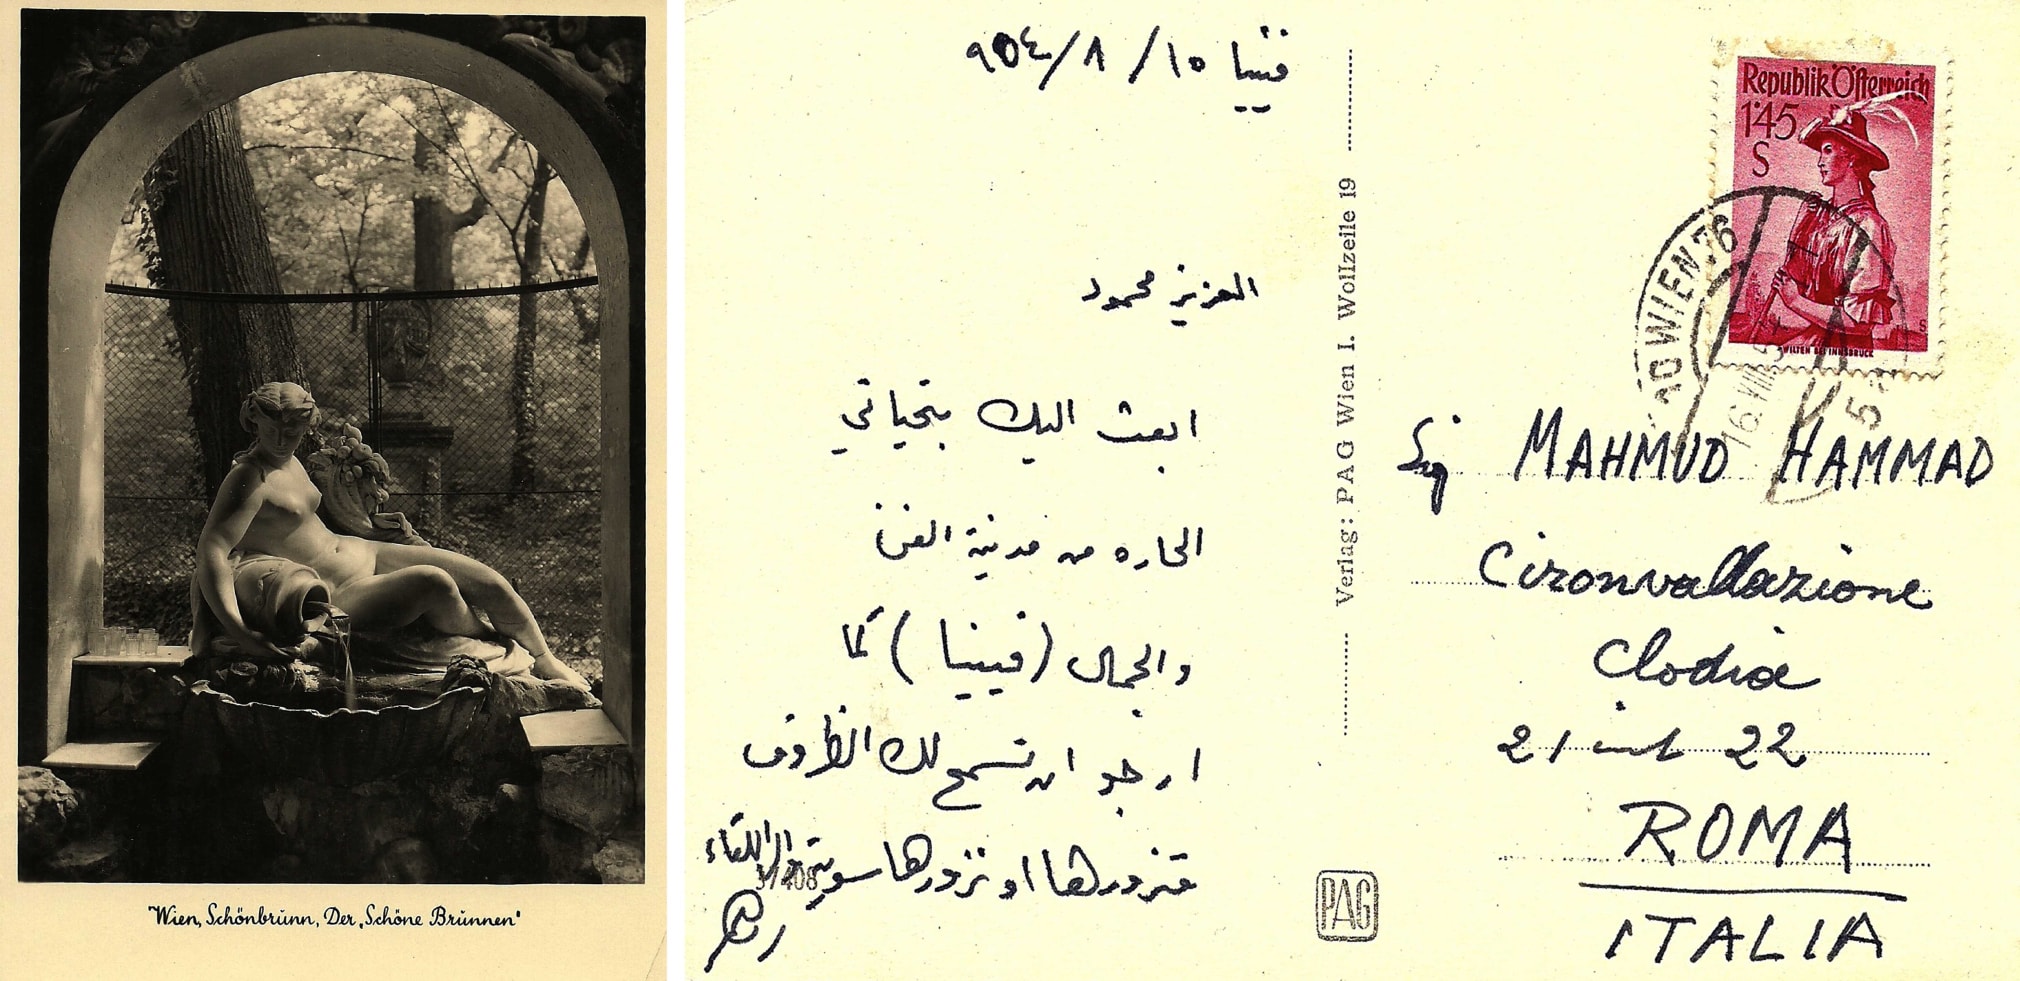 Wien, Schönbrunn, Der „Schöne Brunnen"
ڤيينا ١٥ / ٨ / ٩٥٤
العزيز محمود
ابعث اليك بتحياتي
الحاره من مدينة الفن
والجمال (فيينا) كما
ارجو ان تسمح لك الظروف
فتزورها او نزورها سوية الى اللقاء
3/408
Verlag: PAG Wien I. Wollzeile 19
PAG
Republik Österreich
1·45
S
WILTEN BEI INNSBRUCK
WIEN 76
16.VIII.5
Sig MAHMUD HAMMAD
Cironvallazione
Clodia
21 int 22
ROMA
ITALIA